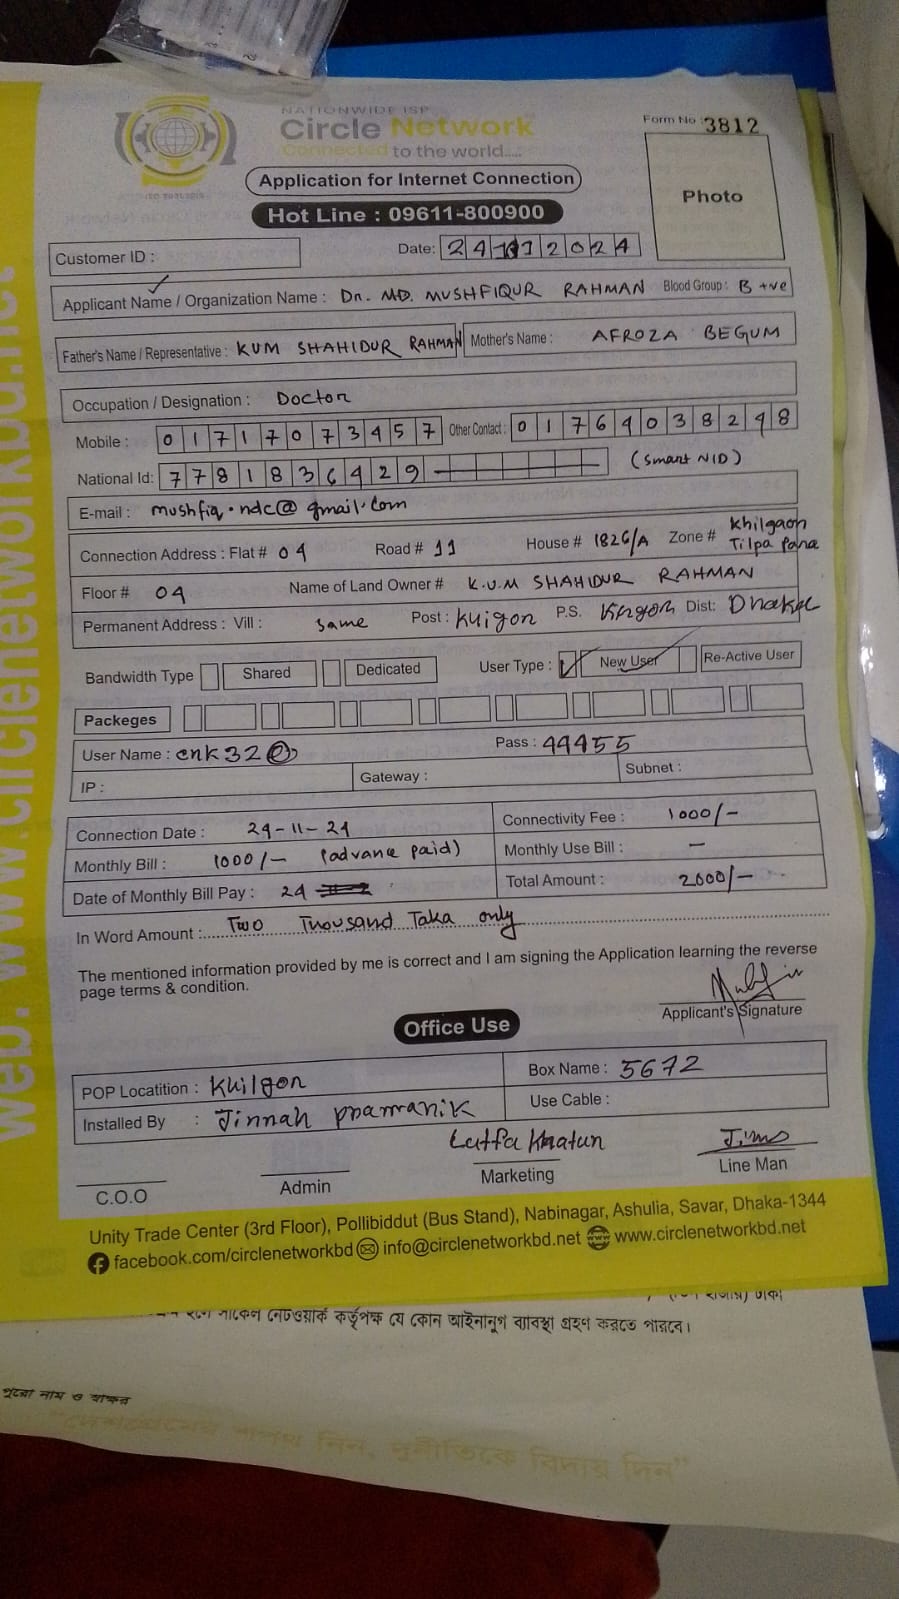 NATIONWIDE ISP
Circle Network
Connected to the world.....
Form No : 3812
Application for Internet Connection
Photo
Hot Line : 09611-800900
Customer ID :
Date: 24 11 2024
Applicant Name / Organization Name : Dr. MD. MUSHFIQUR RAHMAN Blood Group : B +ve
Father's Name / Representative : KUM SHAHIDUR RAHMAN Mother's Name : AFROZA BEGUM
Occupation / Designation : Doctor
Mobile : 01717073457 Other Contact : 01764038298
National Id: 7781836429 (Smart NID)
E-mail : mushfiq.ndc@gmail.com
Connection Address : Flat # 04 Road # 11 House # 1826/A Zone # Khilgaon Tilpa Para
Floor # 04 Name of Land Owner # K.U.M SHAHIDUR RAHMAN
Permanent Address : Vill : same Post : Kuigon P.S. Dist: Dhaka
Bandwidth Type Shared Dedicated User Type : New User Re-Active User
Packeges
User Name : cnk32 Pass : 44455
IP : Gateway : Subnet :
Connection Date : 24-11-24 Connectivity Fee : 1000/-
Monthly Bill : 1000/- (advance paid) Monthly Use Bill : -
Date of Monthly Bill Pay : 24 Total Amount : 2000/-
In Word Amount : Two Thousand Taka only
The mentioned information provided by me is correct and I am signing the Application learning the reverse
page terms & condition.
Applicant's Signature
Office Use
POP Locatition : Khilgon Box Name : 5672
Installed By : Jinnah pramanik Use Cable :
Lutfa Khatun
C.O.O Admin Marketing Line Man
Unity Trade Center (3rd Floor), Pollibiddut (Bus Stand), Nabinagar, Ashulia, Savar, Dhaka-1344
facebook.com/circlenetworkbd info@circlenetworkbd.net www.circlenetworkbd.net
web: www.circlenetworkbd.net
কর্তৃপক্ষ যে কোন আইনানুগ ব্যবস্থা গ্রহণ করতে পারবে।
পুরো নাম ও স্বাক্ষর
"দেশপ্রেমের শপথ নিন, দুর্নীতিকে বিদায় দিন"